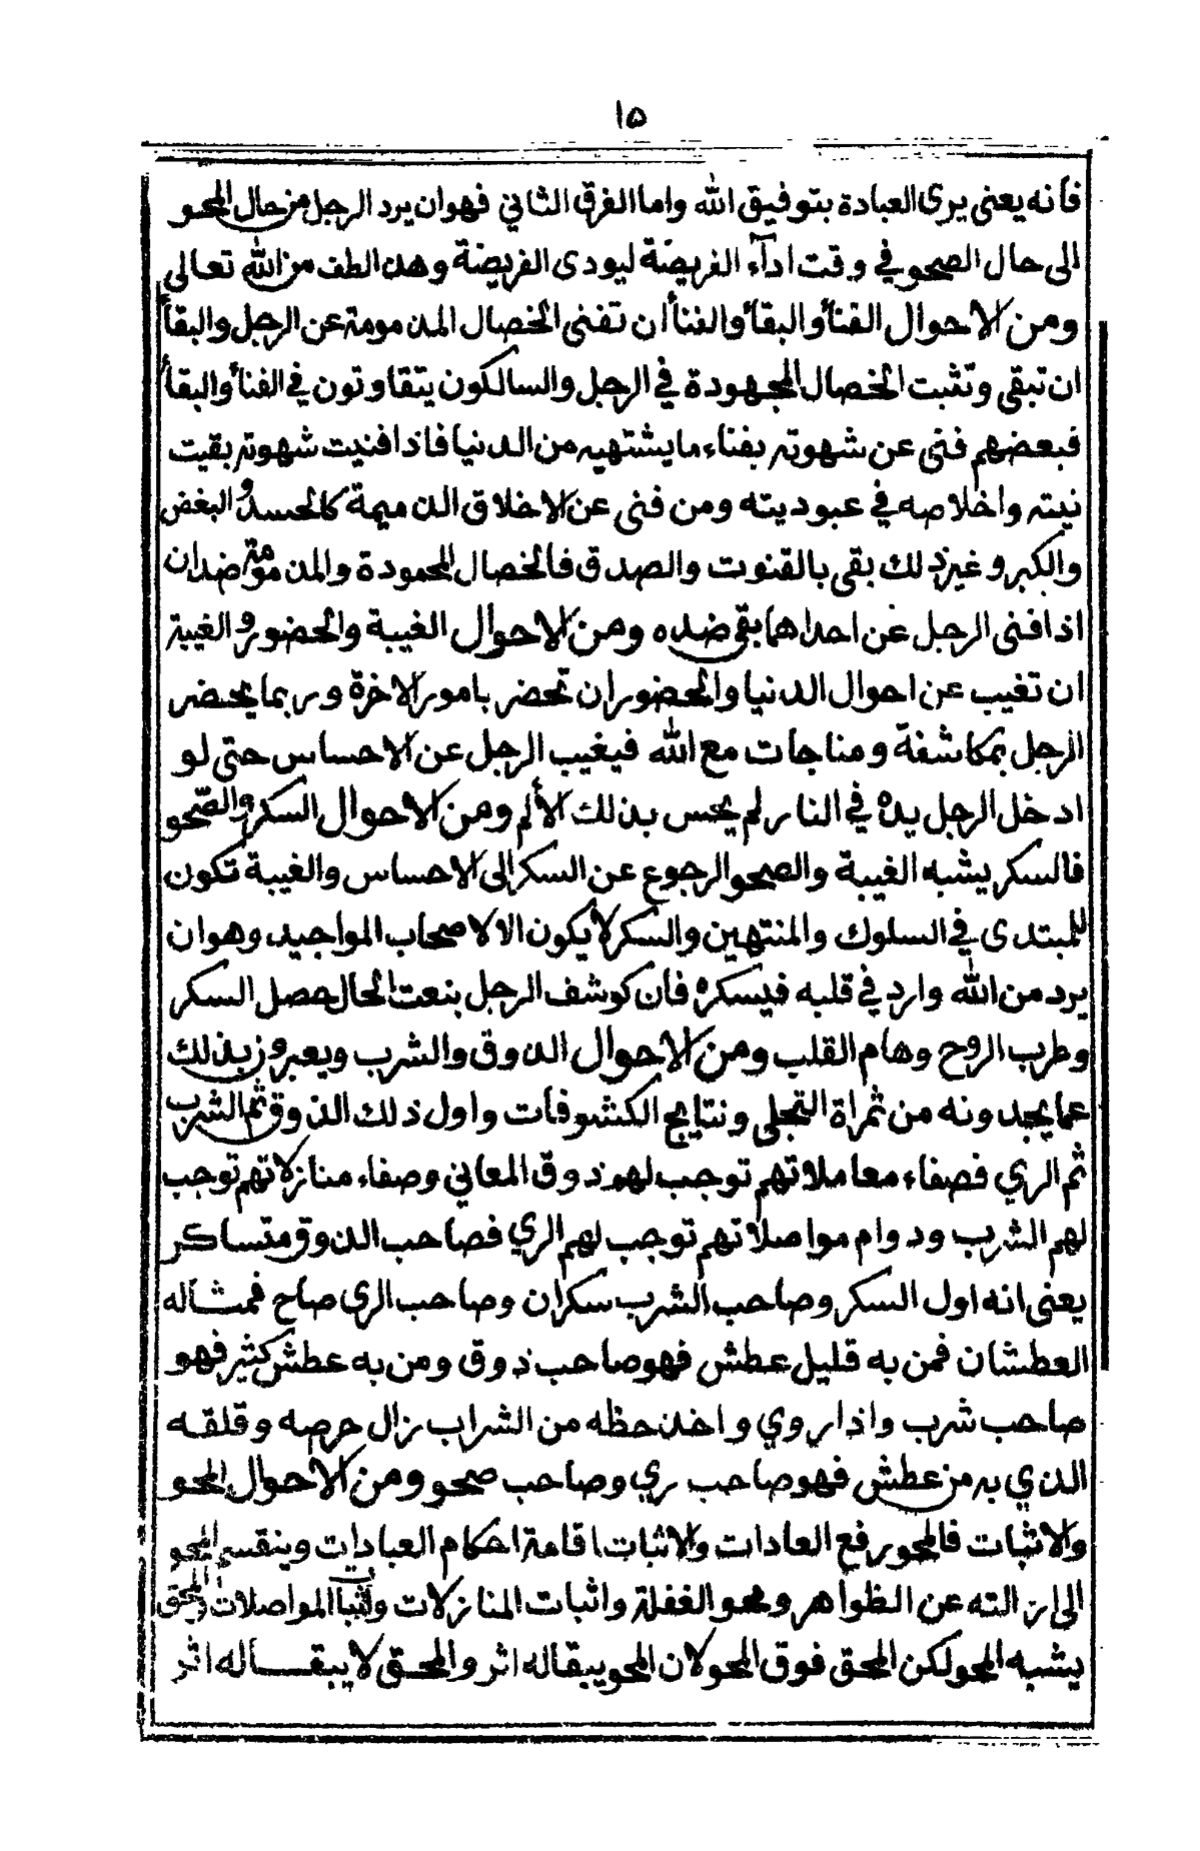 ١٥
فأنه يعنى يرى العبادة بتوفيق الله واما الفرق الثاني فهو ان يرد الرجل من حال المحو
الى حال الصحو في وقت ادآء الفريضة ليودى الفريضة وهذا لطف من الله تعالى
ومن الاحوال الفنأ والبقأ والفنأ ان تفنى الخصال المذمومة عن الرجل والبقأ
ان تبقى وتثبت الخصال المحمودة في الرجل والسالكون يتفاوتون في الفنأ والبقأ
فبعضهم فنى عن شهوته بفناء ما يشتهيه من الدنيا فاذا فنيت شهوته بقيت
نيته واخلاصه في عبوديته ومن فنى عن الاخلاق الذميمة كالحسد والبغض
والكبر وغير ذلك بقى بالقنوت والصدق فالخصال المحمودة والمذمومة ضدان
اذا فنى الرجل عن احداهما بقى ضده ومن الاحوال الغيبة والحضور والغيبة
ان تغيب عن احوال الدنيا والحضور ان تحضر بامور الاخرة وربما يحضر
الرجل بمكاشفة ومناجات مع الله فيغيب الرجل عن الاحساس حتى لو
ادخل الرجل يده في النار لم يحس بذلك الألم ومن الاحوال السكر والصّحو
فالسكر يشبه الغيبة والصحو الرجوع عن السكر الى الاحساس والغيبة تكون
للمبتدى في السلوك والمنتهين والسكر لا يكون الا لاصحاب المواجيد وهو ان
يرد من الله وارد في قلبه فيسكره فأن كوشف الرجل بنعت الحال حصل السكر
وطرب الروح وهام القلب ومن الاحوال الذوق والشرب ويعبرون بذلك
عما يجدونه من ثمراة التجلى ونتايج الكشوفات واول ذلك الذوق ثم الشرب
ثم الري فصفاء معاملاتهم توجب لهم ذوق المعاني وصفاء منازلاتهم توجب
لهم الشرب ودوام مواصلاتهم توجب لهم الري فصاحب الذوق متساكر
يعنى انه اول السكر وصاحب الشرب سكران وصاحب الرى صاح فمثاله
العطشان فمن به قليل عطش فهو صاحب ذوق ومن به عطش كثير فهو
صاحب شرب واذا روي واخذ حظه من الشراب زال حرصه وقلقه
الذي به من عطش فهو صاحب ري وصاحب صحو ومن الاحوال المحو
والاثبات فالمحو رفع العادات والاثبات اقامة احكام العبادات وينقسم المحو
الى ازالته عن الظواهر ومحو الغفلة واثبات المنازلات واثبات المواصلات والمحق
يشبه المحو لكن المحق فوق المحو لان المحو يبقا له اثر والمحق لا يبقا له اثر